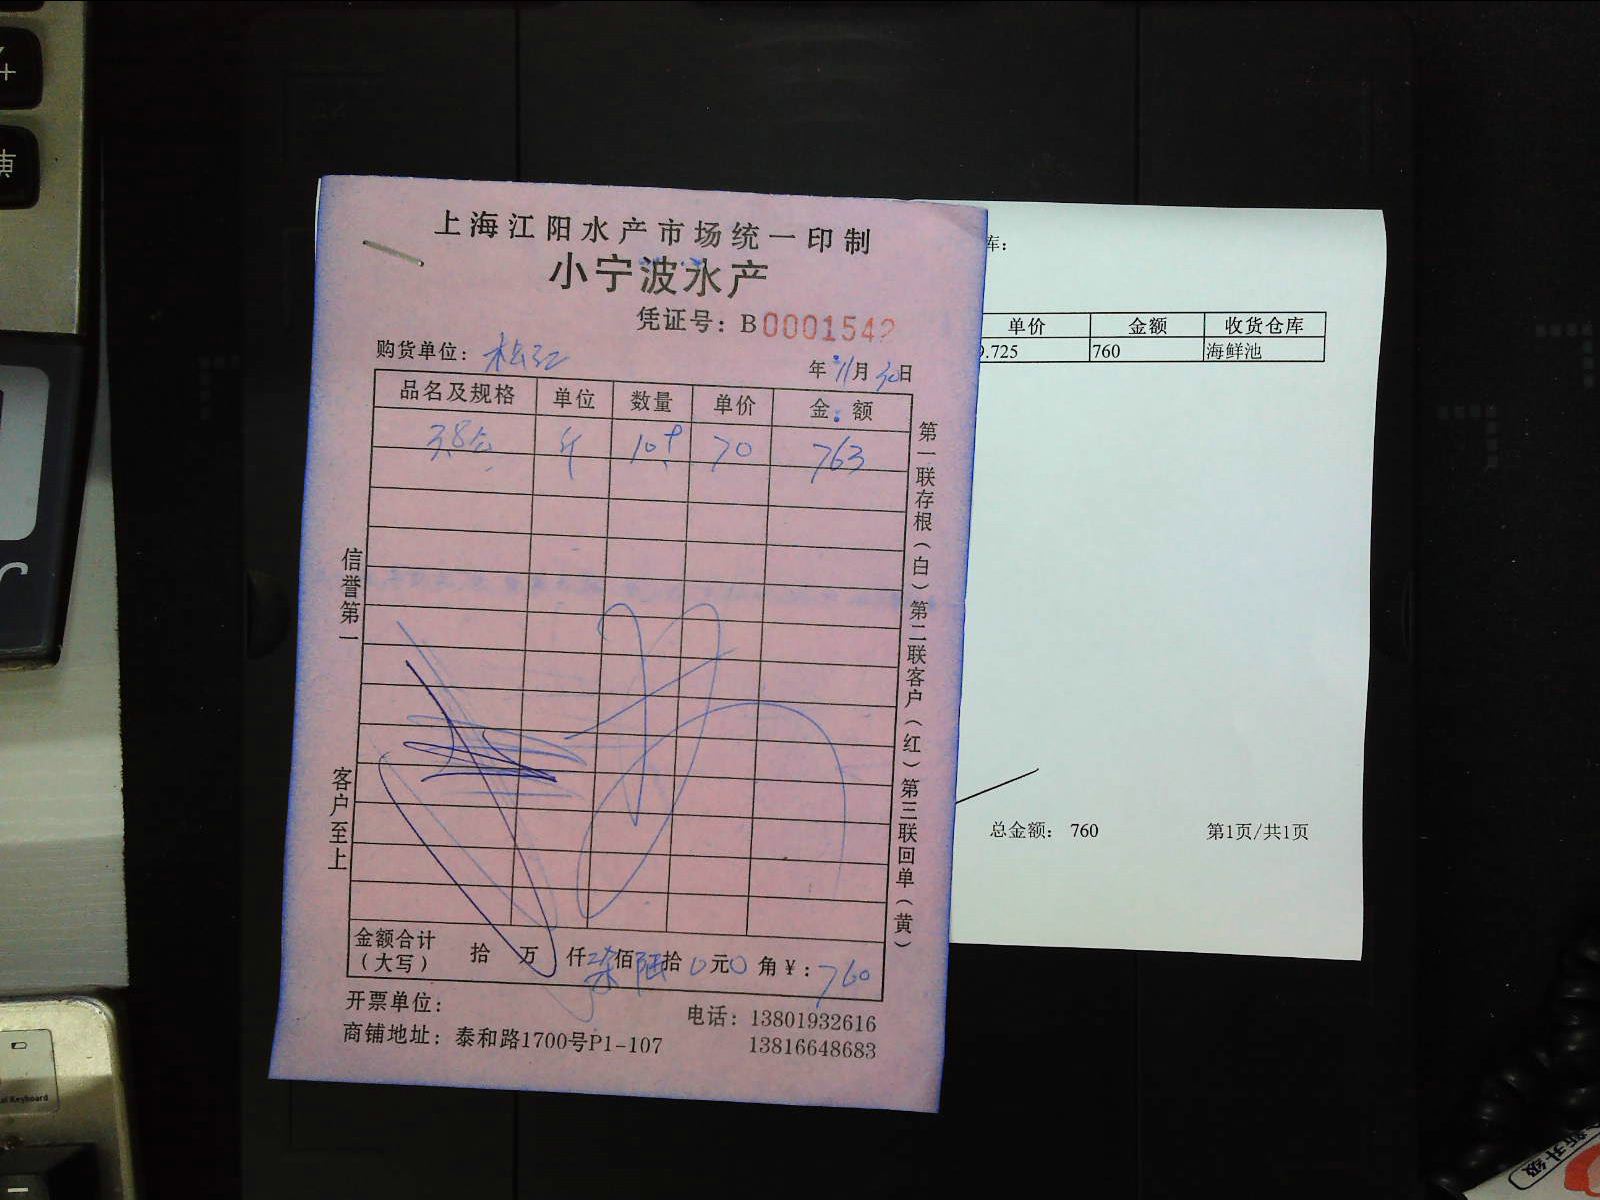 上海江阳水产市场统一印制
小宁波水产
凭证号：B0001542
购货单位：松江
年11月30日
品名及规格 单位 数量 单价 金额
斤 10.9 70 763
信誉第一
客户至上
第一联存根（白）第二联客户（红）第三联回单（黄）
金额合计（大写） 拾 万 仟柒佰陆拾0元0角¥：760
开票单位：
电话：13801932616
商铺地址：泰和路1700号P1-107
13816648683
库：
单价 金额 收货仓库
9.725 760 海鲜池
总金额：760 第1页/共1页